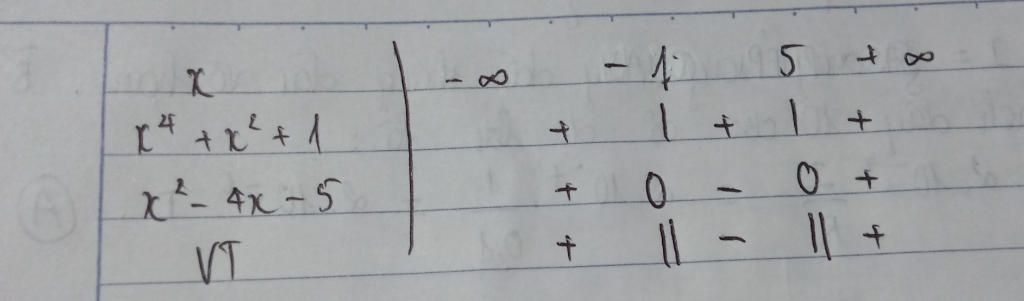 x | -∞ -1 5 +∞
x⁴ + x² + 1 | + | + | +
x² - 4x - 5 | + 0 - 0 +
VT | + || - || +